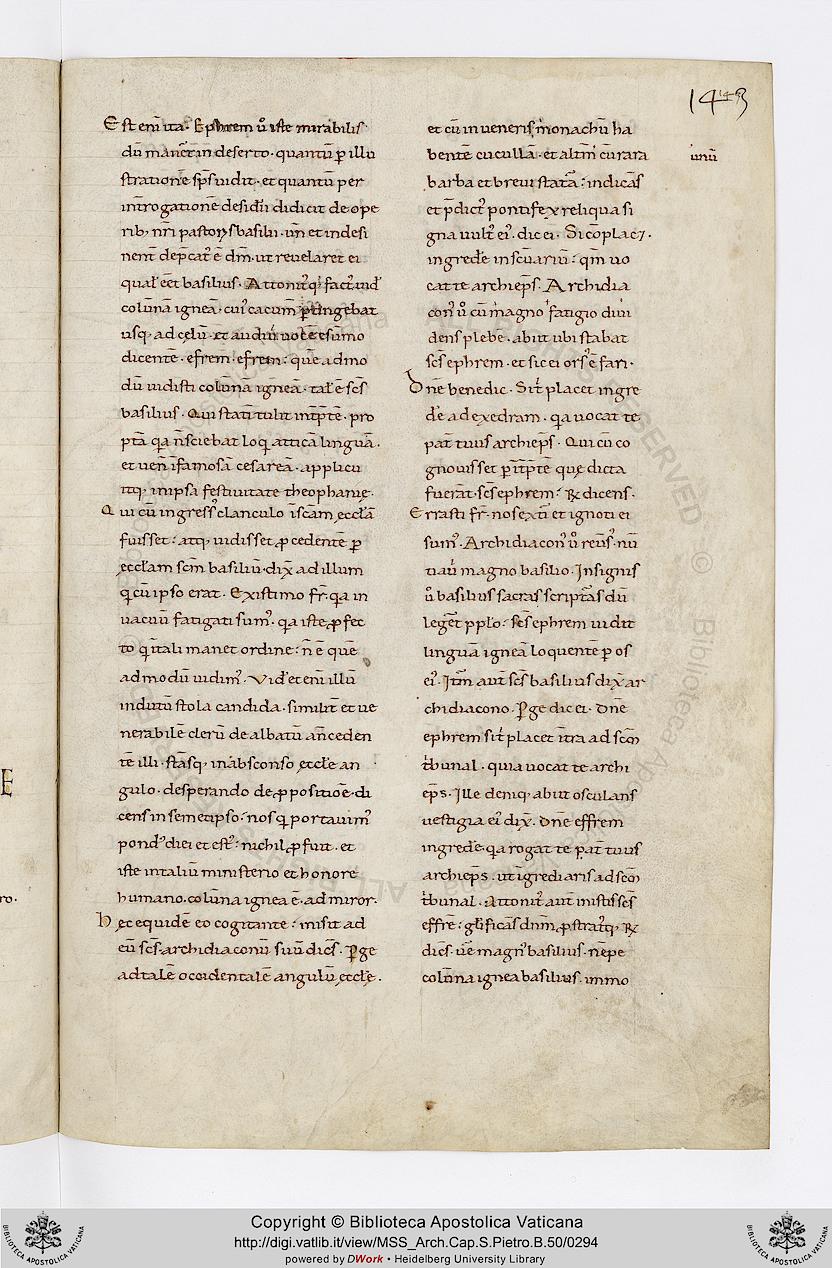 143
143
Est eni᷑ ita. Ephrem u̅ iste mirabilis
du̅ maneret in deserto. quantu̅ p̲ illu
stratione̅ sp̅s uidit. et quantu̅ per
introgatione̅ desidii didicit de ope
rib; nr̅i pastoris basilii. un̅ et indesi
nent̅ dep̅cat᷑ e̅ dn̅m. ut reuelaret ei
qual̅ e̅et basilius. Attonitq; fact᷑ uid̅
colu̅na̅ ignea̅. cui᷑ cacum̅ p̲tingebat
usq; ad celu̅. et audiu̅ uoce̅ desu̅mo
dicente̅. efrem. efrem. que̅admo
du̅ uidisti colu̅na̅ ignea̅. tal̅ e̅ sc̅s
basilius. Qui stati̅ tulit int̅p̅te̅. pro
pt̅a q̅a n̅ sciebat loq̅ attica̅ lingua̅.
et uen̅ i̅ famosa̅ cesarea̅. applicu
itq; in ipsa festiuitate theophanie̜.
Qui cu̅ ingress᷑ clanculo i̅ sc̅am e̜ccl̅a̅
fuisset. atq; uidisset p̲cedente̅ p̲
e̜ccl̅am sc̅m basiliu̅. dix̅ ad illum
q̅ cu̅ ipso erat. Existimo fr̅. q̅a in
uacuu̅ fatigati sum᷑. q̅a iste p̲fec
to q̅ i̅ tali manet ordine. n̅ e̅ que̅
admodu̅ uidim᷑. Vid̅et eni̅ illu̅
indutu̅ stola candida. similit̅ et ue
nerabile̅ cleru̅ de albatu̅ an̅ceden
te̅ illi. sta̅sq; in absconso e̜ccl̅e an
gulo. desperando de p̲positio̅e. di
cens in semetipso. nos q̅ portauim᷑
pond᷑ diei et est᷑. nichil p̲fuit. et
iste in taliu̅ ministerio et honore
humano. colu̅na ignea e̅. admiror.
Hec equide̅ eo cogitante. misit ad
eu̅ sc̅s. archidiaconu̅ suu̅ dice̅s. P̲ge
ad tale̅ occidentale̅ angulu̅ e̜ccl̅e.
et cu̅ inueneris monachu̅ ha
bente̅ cuculla̅. et altm̅ cu̅ rara
unu̅
barba et breui stat̅a. indica̅s
et p̅dict᷑ pontifex reliqua si
gna uult᷑ ei᷑. dic ei. Si co̅placz.
ingred̅e in sc̅uariu̅. qm̅ uo
cat te archiep̅s. Archidia
con᷑ u̅ cu̅ magno fatigio diui
dens plebe̅. abiit ubi stabat
sc̅s ephrem. et sic ei ors᷑ e̅ fari.
Dn̅e benedic. Si t̅ placet ingre
d̅e ad exedram. q̅a uocat te
pat̅ tuus archiep̅s. Qui cu̅ co
gnouisset p̲ i̅t̅p̅te̅ que̜ dicta
fuerat. sc̅s ephrem. R̷ dicens.
Errasti fr̅. nos exti̅ et ignoti ei
sum᷑. Archidiacon᷑ u̅ reu̅s. nu̅
tiau̅ magno basilio. Insignis
u̅ basilius sacras script̅as du̅
leget̅ pp̅lo. sc̅s ephrem uidit
lingua̅ ignea̅ loquente̅ p̲ os
ei᷑. It̅m aut̅ sc̅s basilius dix̅ ar
chidiacono. P̲ge dic ei. dn̅e
ephrem si t̅ placet i̅tra ad sc̅m
t̅bunal. quia uocat te archi
ep̅s. Ille deniq; abiit osculans
uestigia ei᷑ dix̅. dn̅e effrem
ingred̅e. q̅a rogat te pat̅ tuus
archiep̅s. ut ingrediaris ad sc̅m
t̅bunal. Attonit᷑ aut̅ in istis sc̅s
effre̅. gl̅ifica̅s dn̅m. p̲stratq; R̷
dice̅s. ue̅ magn᷑ basilius. ne̅pe
colu̅na ignea basilius. immo
E
ro.
Copyright © Biblioteca Apostolica Vaticana
http://digi.vatlib.it/view/MSS_Arch.Cap.S.Pietro.B.50/0294
powered by DWork • Heidelberg University Library
BIBLIOTECA APOSTOLICA VATICANA
BIBLIOTECA APOSTOLICA VATICANA